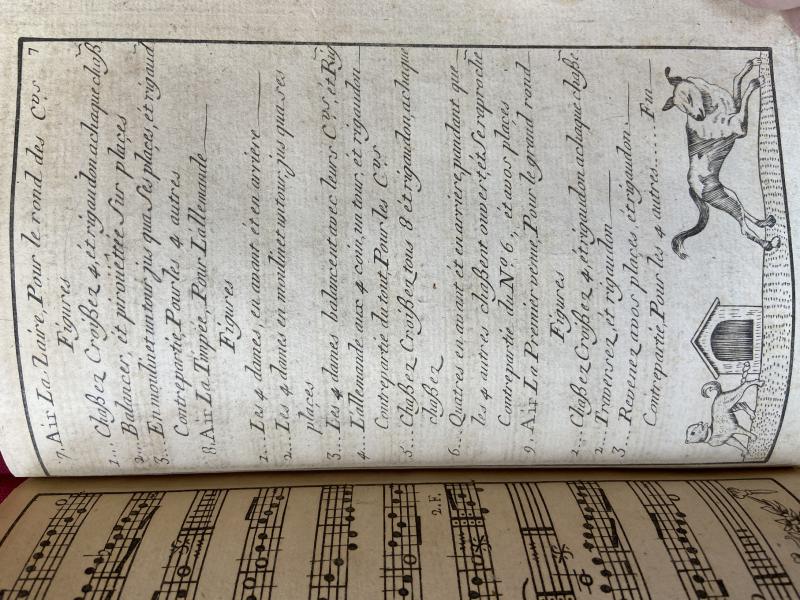 7
7. Air La Zaire, Pour le rond des C.vs
Figures
1... Chaßez Croißez 4, et rigaudon a chaque chaß.
Balancer, et pirouëttée Sur places
3... En moulinet un tour jus qua Ses places, et rigaud
Contrepartie Pour les 4 autres
8. Air La Timpée, Pour L'allemande
Figures
1... Les 4 dames, en avant et en arriere
2... Les 4 dames en moulinet un tour, jus qua ses
places
3... Les 4 dames balancent avec leurs C.vs, et Rig
4... L'allemande aux 4 coins, un tour, et rigaudon
Contrepartie du tout, Pour les C.vs
5... Chaßez Croißez tous 8 et rigaudon, a chaque
chaßez
6... Quatres en avant et en arriere, pendant que
les 4 autres chaßent ouvert, et Se raproche
Contrepartie du N.o 6, et a vos places
9. Air La Premier venue, Pour le grand rond
Figures
1... Chaßez Croßez 4, et rigaudon a chaque chaße.
2... Traversez, et rigaudon
3... Revenez a vos places, et rigaudon.
Contrepartie, Pour les 4 autres...... Fin
2. F.